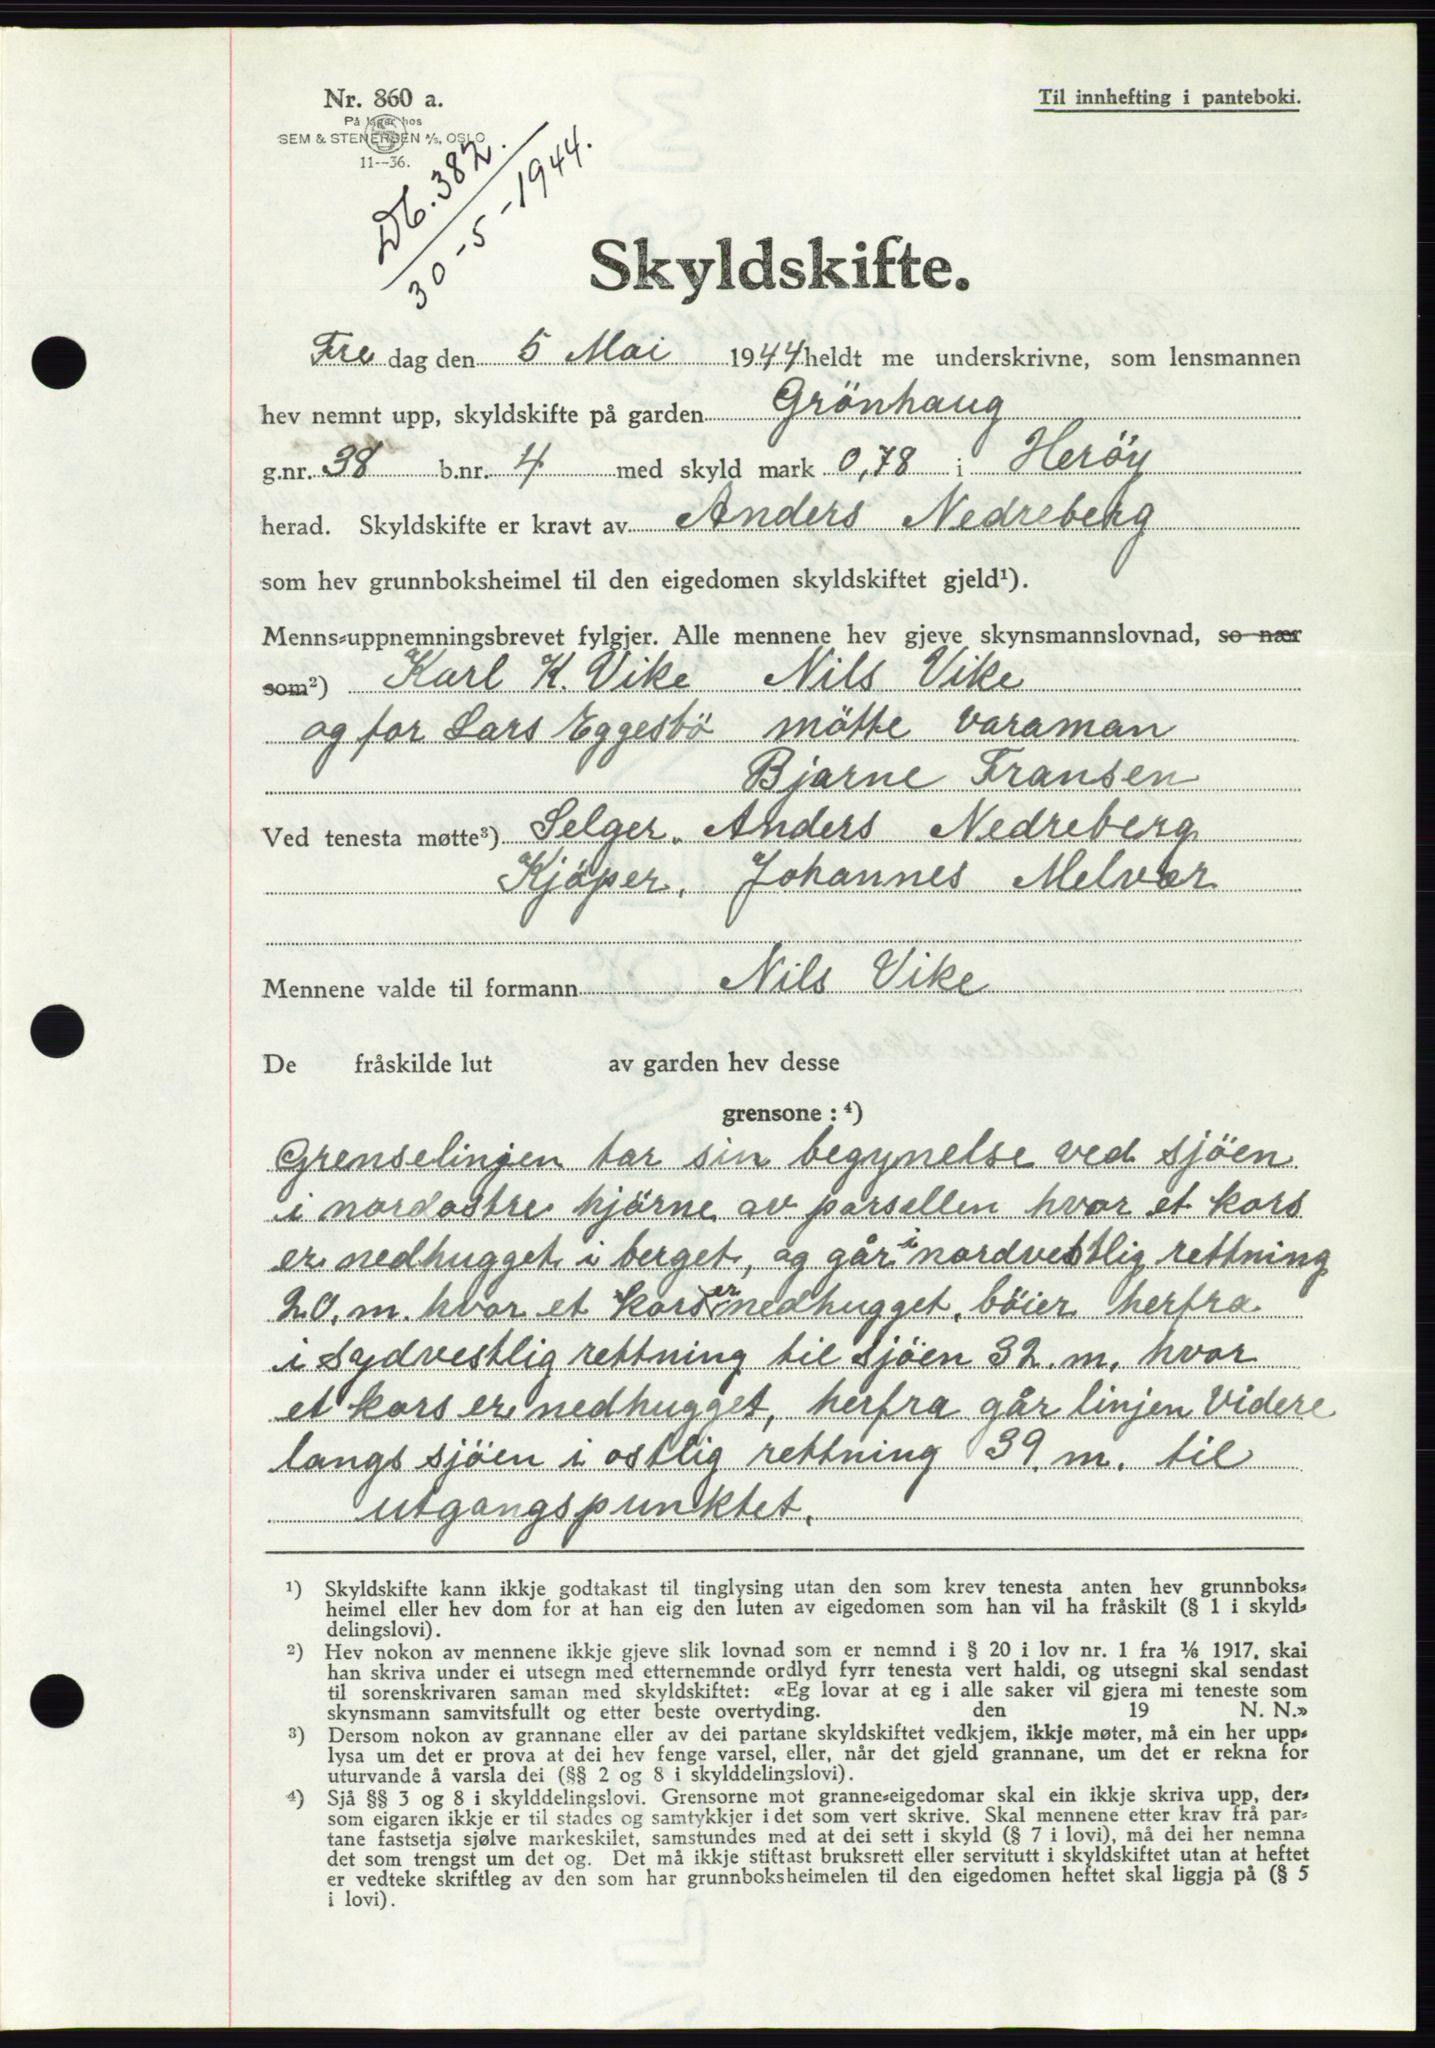 Nr. 860 a.
På lager hos
SEM & STENERSEN A/S, OSLO
11--36.
Til innhefting i panteboki.
Db. 382.
30-5-1944.
Skyldskifte.
Fre dag den 5 Mai 1944 heldt me underskrivne, som lensmannen
hev nemnt upp, skyldskifte på garden Grönhaug
g.nr. 38 b.nr. 4 med skyld mark 0,78 i Heröy
herad. Skyldskifte er kravt av Anders Nedreberg
som hev grunnboksheimel til den eigedomen skyldskiftet gjeld¹).
Menns-uppnemningsbrevet fylgjer. Alle mennene hev gjeve skynsmannslovnad, so nær
som²) Karl K. Vike Nils Vike
og for Lars Eggesbö mötte varaman
Bjarne Fransen
Ved tenesta møtte³) Selger. Anders Nedreberg
Kjöper, Johannes Melvær
Mennene valde til formann Nils Vike
De fråskilde lut av garden hev desse
grensone : ⁴)
Grenselinjen tar sin begynelse ved sjöen
i nordostre hjörne av parsellen hvor et kors
er nedhugget i berget, og går i nordvestlig rettning
20. m. hvor et kors er nedhugget, böier herfra
i sydvestlig rettning til sjöen 32. m. hvor
et kors er nedhugget, herfra går linjen videre
langs sjöen i ostlig rettning 39. m. til
utgangspunktet.
¹) Skyldskifte kann ikkje godtakast til tinglysing utan den som krev tenesta anten hev grunnboks-
heimel eller hev dom for at han eig den luten av eigedomen som han vil ha fråskilt (§ 1 i skyld-
delingslovi).
²) Hev nokon av mennene ikkje gjeve slik lovnad som er nemnd i § 20 i lov nr. 1 fra ⅙ 1917, skal
han skriva under ei utsegn med etternemnde ordlyd fyrr tenesta vert haldi, og utsegni skal sendast
til sorenskrivaren saman med skyldskiftet: «Eg lovar at eg i alle saker vil gjera mi teneste som
skynsmann samvitsfullt og etter beste overtyding. den 19 N. N.»
³) Dersom nokon av grannane eller av dei partane skyldskiftet vedkjem, ikkje møter, må ein her upp-
lysa um det er prova at dei hev fenge varsel, eller, når det gjeld grannane, um det er rekna for
uturvande å varsla dei (§§ 2 og 8 i skylddelingslovi).
⁴) Sjå §§ 3 og 8 i skylddelingslovi. Grensorne mot granne-eigedomar skal ein ikkje skriva upp, der-
som eigaren ikkje er til stades og samtykkjer i det som vert skrive. Skal mennene etter krav frå par-
tane fastsetja sjølve markeskilet, samstundes med at dei sett i skyld (§ 7 i lovi), må dei her nemna
det som trengst um det og. Det må ikkje stiftast bruksrett eller servitutt i skyldskiftet utan at heftet
er vedteke skriftleg av den som har grunnboksheimelen til den eigedomen heftet skal liggja på (§ 5
i lovi).